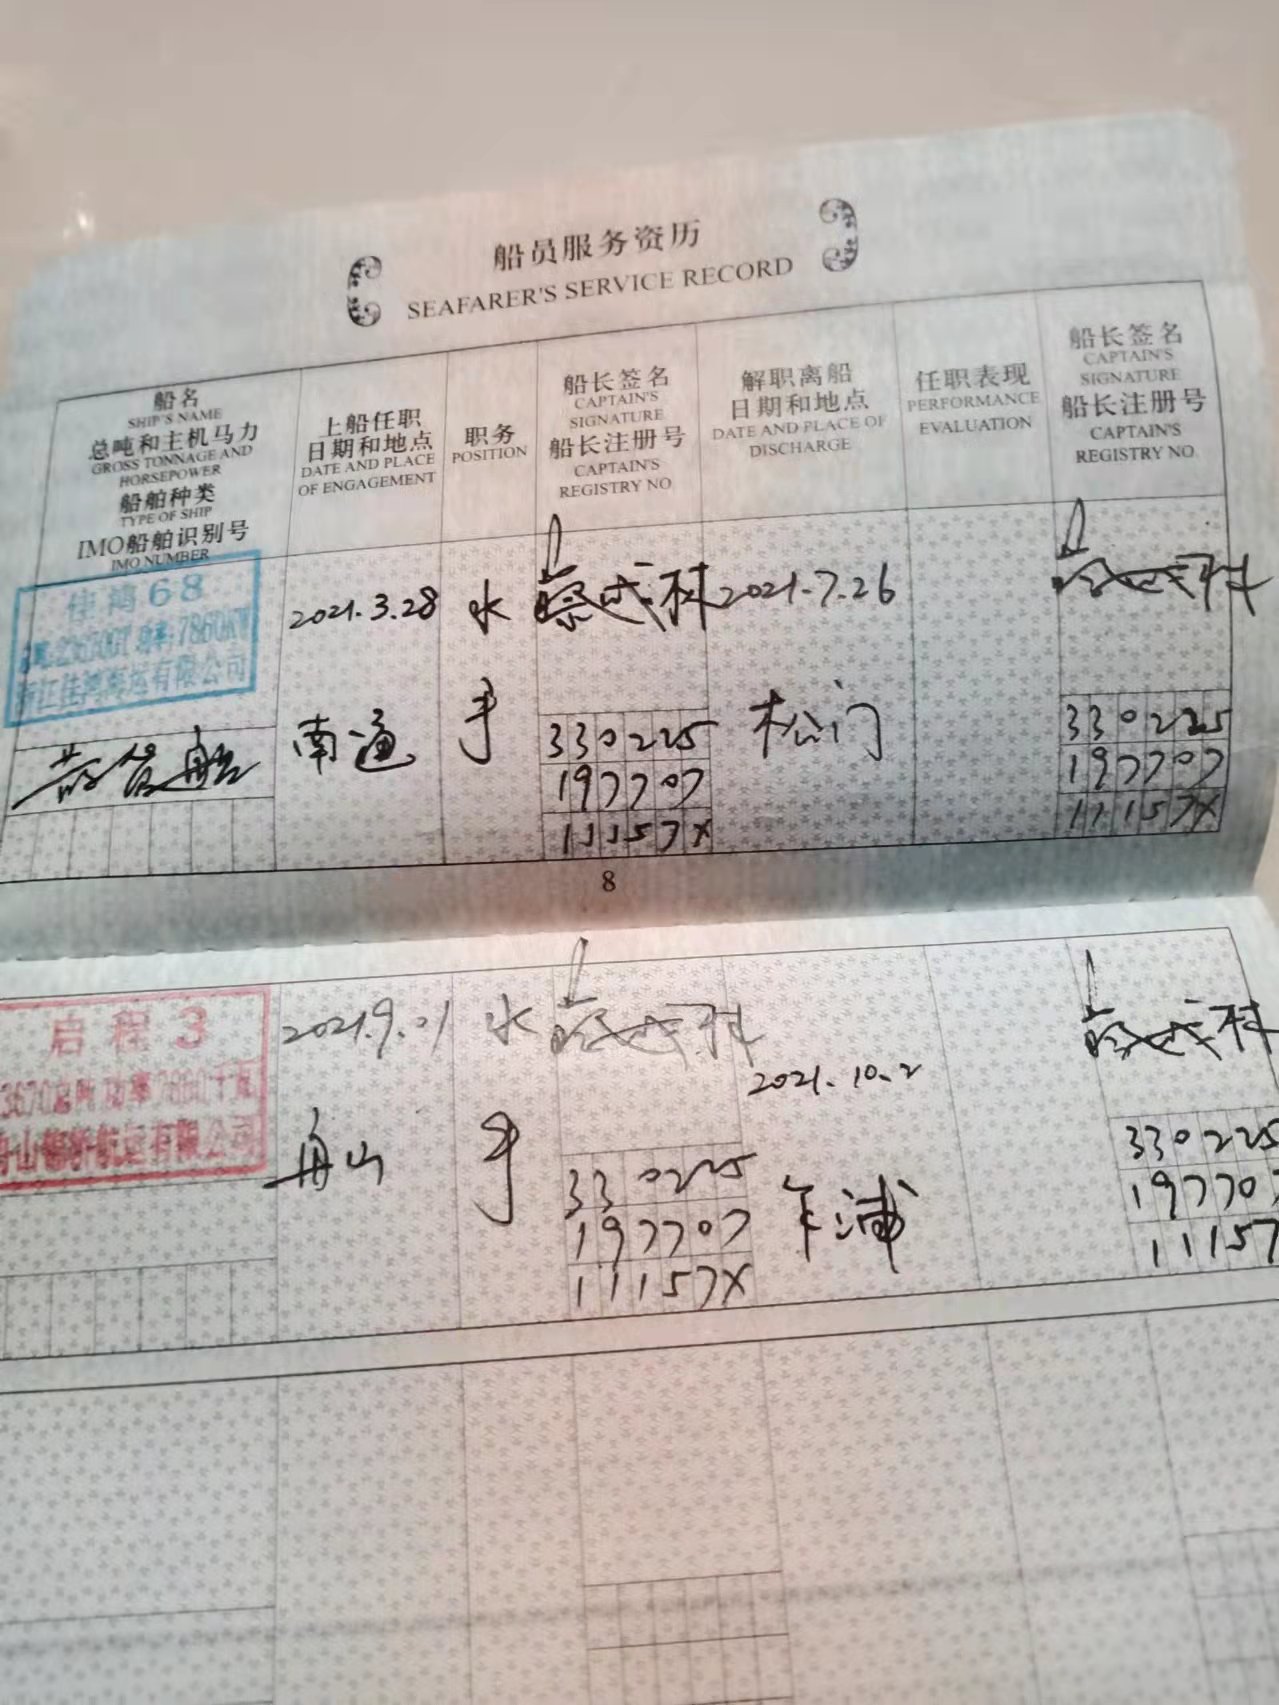 船员服务资历
SEAFARER'S SERVICE RECORD
船名
SHIP'S NAME
总吨和主机马力
GROSS TONNAGE AND
HORSEPOWER
船舶种类
TYPE OF SHIP
IMO船舶识别号
IMO NUMBER
上船任职
日期和地点
DATE AND PLACE
OF ENGAGEMENT
职务
POSITION
船长签名
CAPTAIN'S
SIGNATURE
船长注册号
CAPTAIN'S
REGISTRY NO
解职离船
日期和地点
DATE AND PLACE OF
DISCHARGE
任职表现
PERFORMANCE
EVALUATION
船长签名
CAPTAIN'S
SIGNATURE
船长注册号
CAPTAIN'S
REGISTRY NO.
佳鸿68
7860KW
浙江佳鸿海运有限公司
2021.3.28
南通
水
手
330225
197707
11157X
2021.7.26
松门
330225
197707
11157X
8
启程3
3670总吨 功率7860千瓦
航运有限公司
2021.9.01
舟山
水
手
330225
197707
11157X
2021.10.2
乍浦
330225
19770
11157